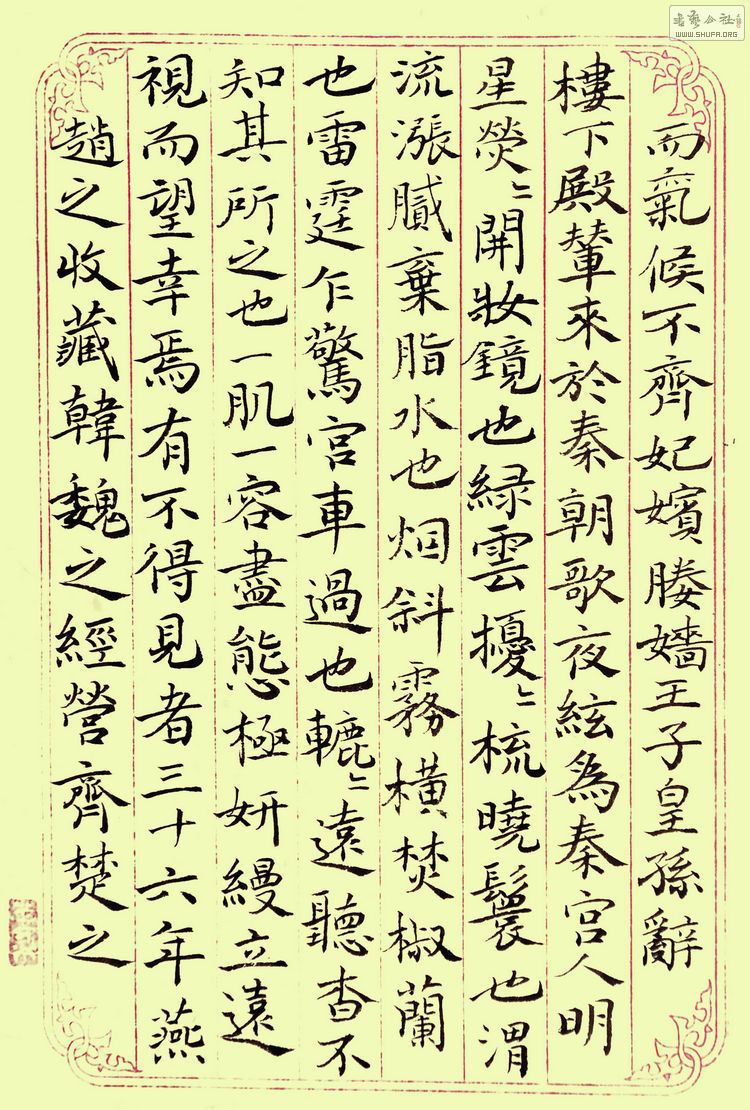 而氣候不齊妃嬪媵嬙王子皇孫辭
樓下殿輦來於秦朝歌夜絃為秦宮人明
星熒〻開妝鏡也綠雲擾〻梳曉鬟也渭
流漲膩棄脂水也烟斜霧橫焚椒蘭
也雷霆乍驚宮車過也轆〻遠聽杳不
知其所之也一肌一容盡態極妍縵立遠
視而望幸焉有不得見者三十六年燕
趙之收藏韓魏之經營齊楚之
書藝公社
WWW.SHUFA.ORG